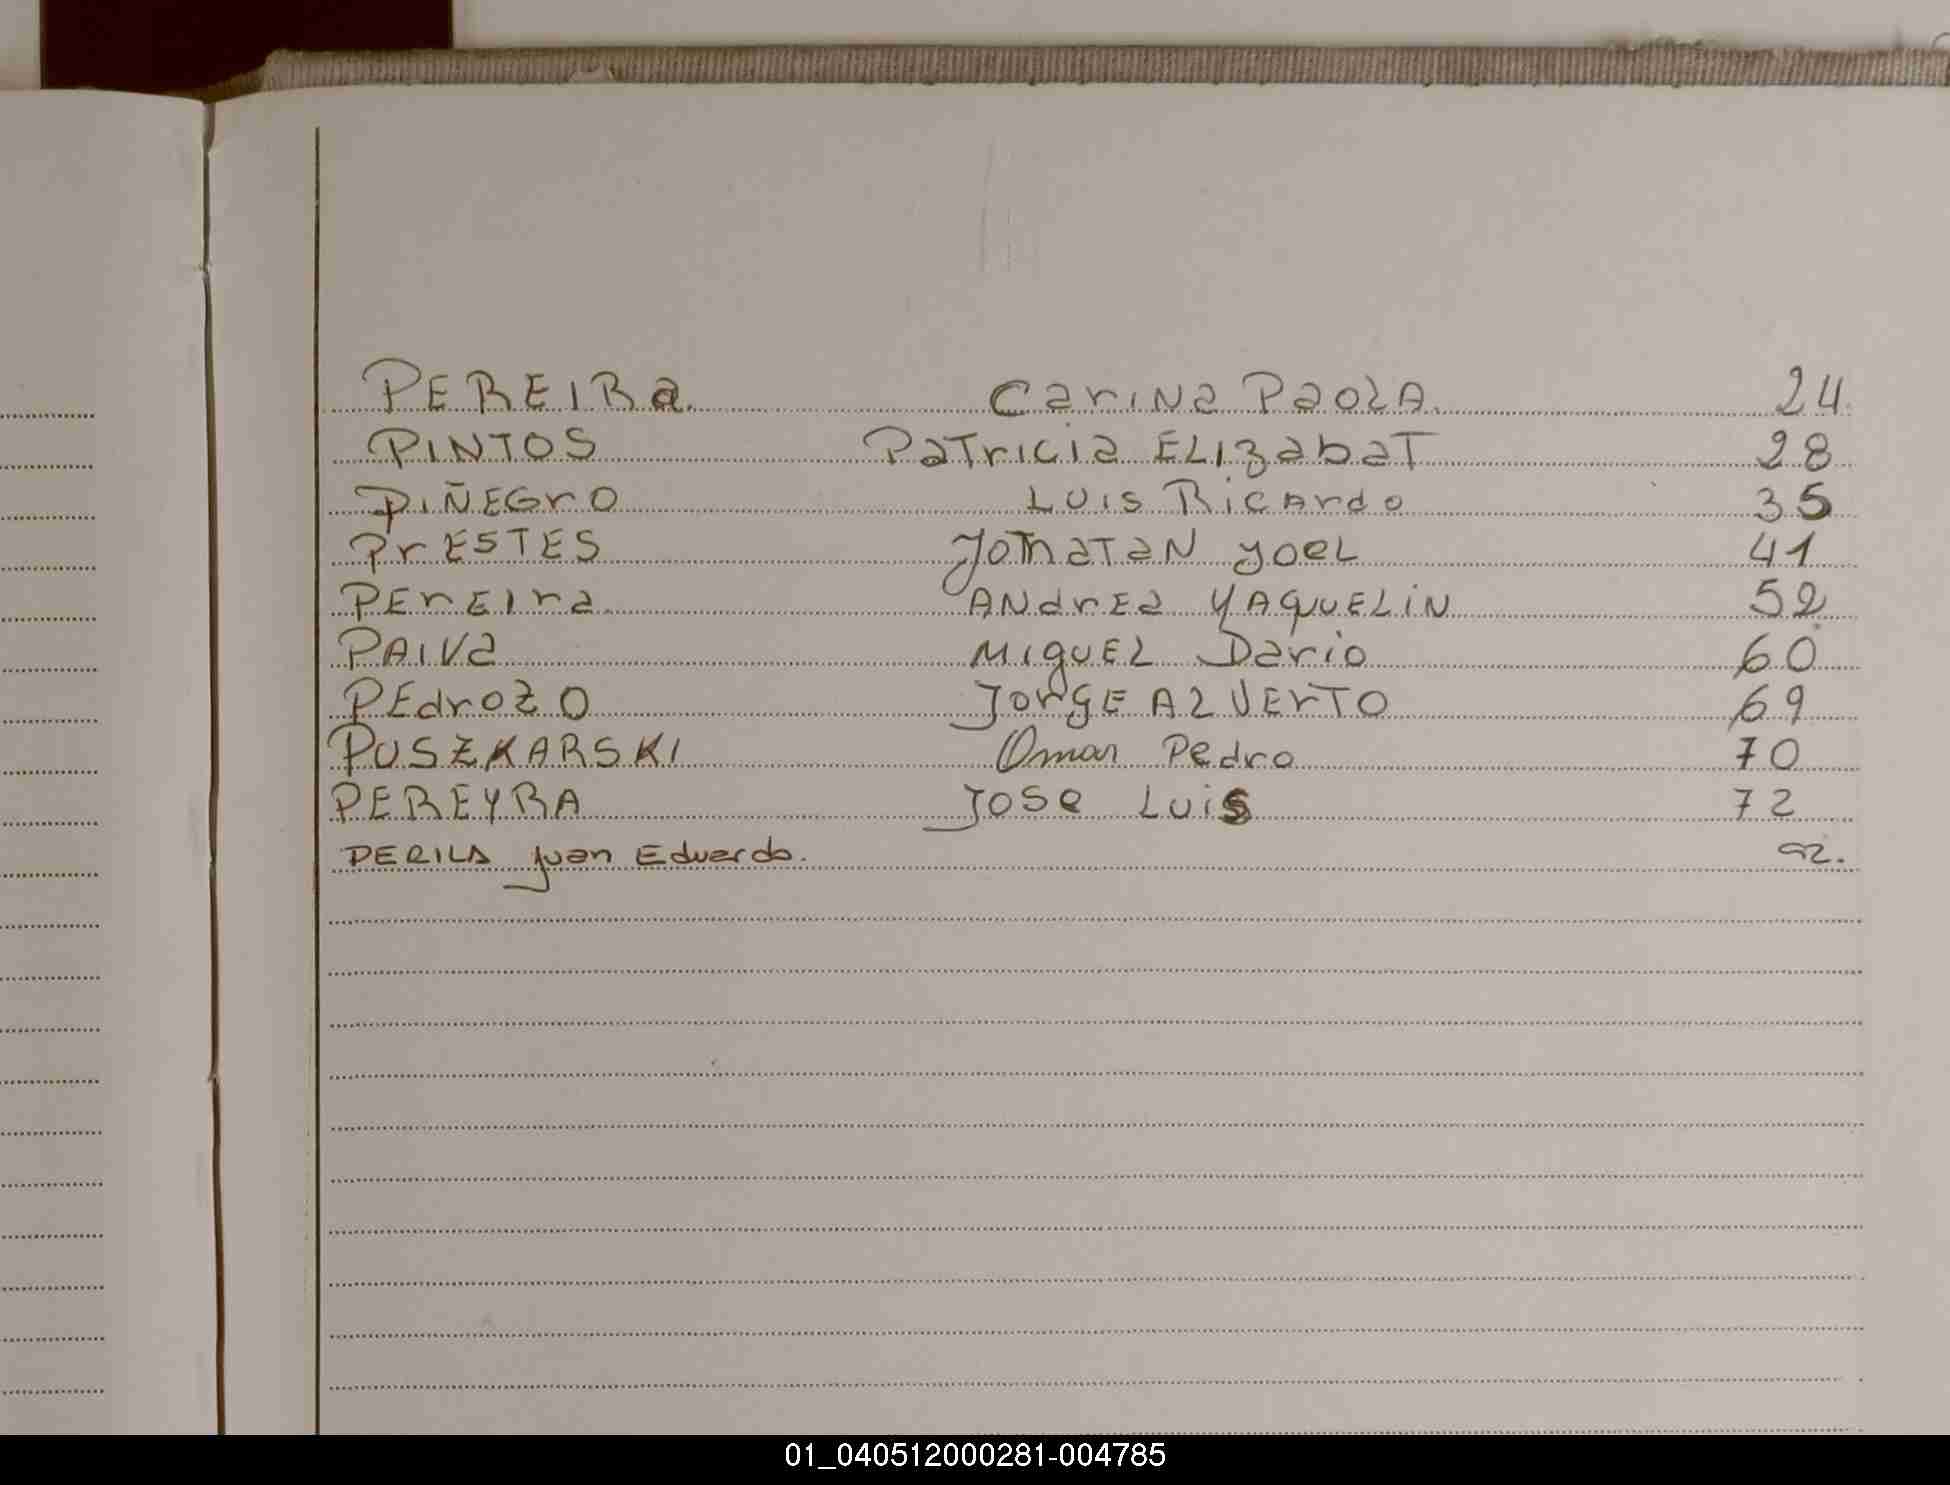 PEREIRa. Carina Paola. 24.
PINTOS Patricia ELIzabaT 28
PIÑEGrO LUIS Ricardo 35
PrESTES JOnaTaN yoeL 41
PErEIra. ANdrEa YAQUELiN 52
PAIVa MIgUEL Dario 60
PEdrOZO JOrGE ALVErTO 69
PUSZKARSKI Omar Pedro 70
PEREYRA JOSe Luis 72
PERILA Juan Eduardo. 92.
01_040512000281-004785